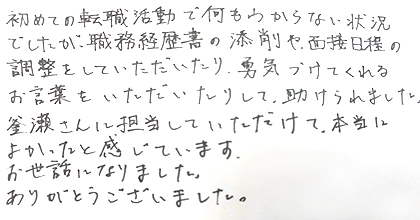 初めての転職活動で何もわからない状況
でしたが、職務経歴書の添削や、面接日程の
調整をしていただいたり、勇気づけてくれる
お言葉をいただいたりして、助けられました。
釜瀬さんに担当していただけて、本当に
よかったと感じています。
お世話になりました。
ありがとうございました。